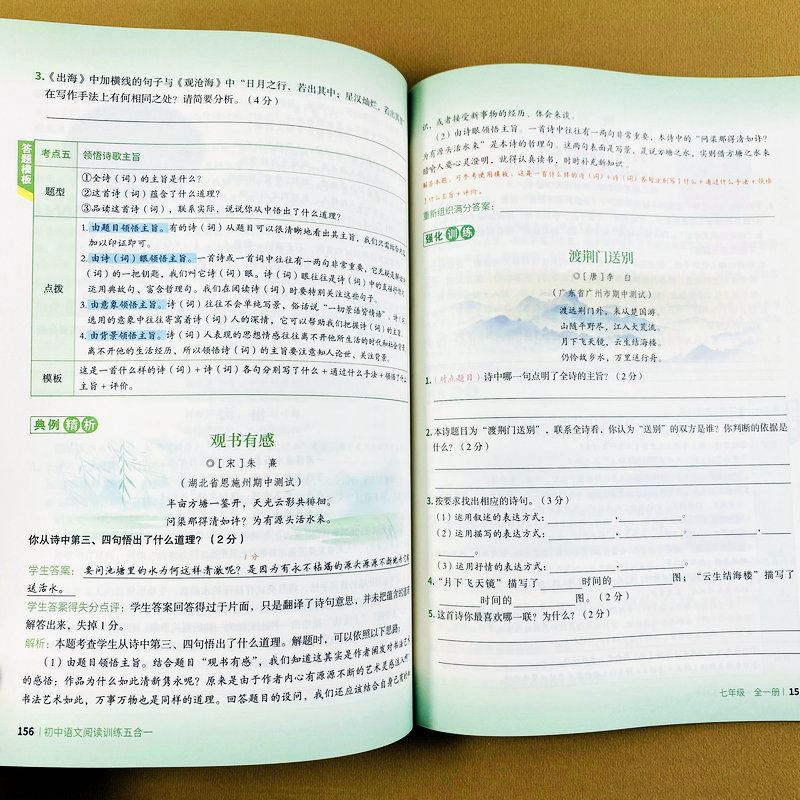 3.《出海》中加横线的句子与《观沧海》中“日月之行，若出其中；星汉灿烂，若出其
在写作手法上有何相同之处？请简要分析。（4分）
答题模板
考点五 领悟诗歌主旨
题型
①全诗（词）的主旨是什么？
②这首诗（词）蕴含了什么道理？
③品读这首诗（词），联系实际，说说你从中悟出了什么道理？
点拨
1.由题目领悟主旨。有的诗（词）从题目可以很清晰地看出其主旨，我们只需结合
加以印证即可。
2.由诗（词）眼领悟主旨。一首诗或一首词中往往有一两句非常重要，它无疑是解读
（词）的一把钥匙，我们叫它诗（词）眼。诗（词）眼往往是诗（词）中的
运用典故句、富含哲理句。我们在阅读诗（词）时要特别关注这些句子。
3.由意象领悟主旨。诗（词）往往不会单纯写景，俗话说“一切景语皆情语”，诗
选用的意象中往往寄寓着诗（词）人的深情，它可以帮助我们把握诗（词）的主旨。
4.由背景领悟主旨。诗（词）人表现的思想情感往往离不开他所生活的时代和社会背景
离不开他的生活经历，所以领悟诗（词）的主旨要注意知人论世、关注背景。
模板
这是一首什么样的诗（词）+诗（词）各句分别写了什么+通过什么手法+领悟了什么
主旨+评价。
典例 精析
观书有感
◎［宋］朱 熹
（湖北省恩施州期中测试）
半亩方塘一鉴开，天光云影共徘徊。
问渠那得清如许？为有源头活水来。
你从诗中第三、四句悟出了什么道理？（2分）
1分
学生答案：要问池塘里的水为何这样清澈呢？是因为有永不枯竭的源头源源不断地为它
送活水。
学生答案得失分点评：学生答案回答得过于片面，只是翻译了诗句意思，并未把蕴含的道理
解答出来，失掉1分。
解析：本题考查学生从诗中第三、四句悟出了什么道理。解题时，可以依照以下思路：
（1）由题目领悟主旨。结合题目“观书有感”，我们知道这其实是作者阐发对书法艺术
的感悟：作品为什么如此清新隽永呢？原来是由于作者内心有源源不断的艺术灵感注入啊！
书法艺术如此，万事万物也是同样的道理。回答题目的设问，我们还应该结合自身已有的
156 初中语文阅读训练五合一
识，或者接受新事物的经历、体会来谈。
（2）由诗眼领悟主旨。一首诗中往往有一两句非常重要，本诗中的“问渠那得清如许？
为有源头活水来”是本诗的哲理句。这两句表面是写景，是说方塘之水，实则借方塘之水来
暗喻人要心灵澄明，就得认真读书，时时补充新知识。
解答本题，可参考使用模板：这是一首什么样的诗（词）+诗（词）各句分别写了什么+通过什么手法+领悟
了什么主旨+评价。
重新组织满分答案：
强化 训练
渡荆门送别
◎［唐］李 白
（广东省广州市期中测试）
渡远荆门外，来从楚国游。
山随平野尽，江入大荒流。
月下飞天镜，云生结海楼。
仍怜故乡水，万里送行舟。
1.（对点题目）诗中哪一句点明了全诗的主旨？（2分）
2.本诗题目为“渡荆门送别”，联系全诗看，你认为“送别”的双方是谁？你判断的依据是
什么？（2分）
3.按要求找出相应的诗句。（3分）
（1）运用叙述的表达方式：，。
（2）运用描写的表达方式：，。，
。
（3）运用抒情的表达方式：，。
4.“月下飞天镜”描写了 时间的 图；“云生结海楼”描写了
时间的 图。（2分）
5.这首诗你最喜欢哪一联？为什么？（2分）
七年级 全一册 15